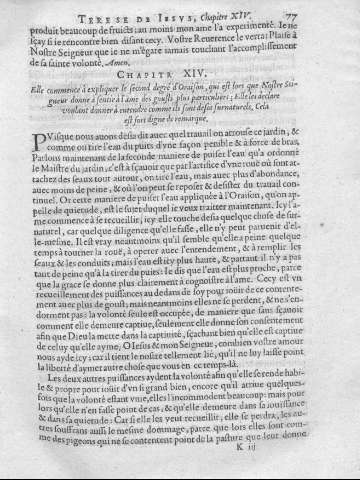 TERESE DE IESVS, Chapitre XIV. 77
produit beaucoup de fruicts: au moins mon ame l'a experimenté. Ie ne
sçay si ie rencontre bien disant cecy. Vostre Reuerence le verra: Plaise à
Nostre Seigneur que ie ne m'égare iamais touchant l'accomplissement
de sa sainte volonté. Amen.
CHAPITR XIV.
Elle commence à expliquer le second degré d'Oraison, qui est lors que Nostre Sei-
gneur donne à sentir à l'ame des gousts plus particuliers; Elle les declare
voulant donner à entendre comme ils sont desia surnaturels. Cela
est fort digne de remarque.
PVisque nous auons desia dit auec quel trauail on arrouse ce jardin, &
comme on tire l'eau du puits d'vne façon penible & à force de bras,
Parlons maintenant de la seconde maniere de puiser l'eau qu'a ordonné
le Maistre du jardin, c'est à sçauoir que par l'artifice d'vne rouë où sont at-
tachez des seaux tout autour, on tire l'eau, mais auec plus d'abondance,
auec moins de peine, & où l'on peut se reposer & desister du trauail conti-
nuel. Or cette maniere de puiser l'eau appliquée à l'Oraison, qu'on ap-
pelle de quietude, est le sujet duquel ie veux traitter maintenant. Icy l'a-
me commence à se recueillir; icy elle touche desia quelque chose de sur-
naturel, car quelque diligence qu'elle fasse, elle n'y peut paruenir d'el-
le-mesme. Il est vray neantmoins qu'il semble qu'elle a peine quelque
temps à tourner la rouë, à operer auec l'entendement, & à remplir les
seaux & les conduits; mais l'eau est icy plus haute, & partant il n'y a pas
tant de peine qu'à la tirer du puits: Ie dis que l'eau est plus proche, parce
que la grace se donne plus clairement à cognoistre à l'ame. Cecy est vn
recueillement des puissances au dedans de soy pour iouïr de ce contente-
ment auec plus de goust; mais neantmoins elles ne se perdent, & ne s'en-
dorment pas: la volonté seule est occupée, de maniere que sans sçauoir
comment elle demeure captiue, seulement elle donne son consentement
afin que Dieu la mette dans la captiuité, sçachant bien qu'elle est captiue
de celuy qu'elle ayme. O Iesus & mon Seigneur, combien vostre amour
nous ayde icy; car il tient le nostre tellement lié, qu'il ne luy laisse point
la liberté d'aymer autre chose que vous en ce temps-là.
Les deux autres puissances aydent la volonté afin qu'elle se rende habi-
le & propre pour iouïr d'vn si grand bien, encore qu'il arriue quelques-
fois que la volonté estant vnie, elles l'incommodent beaucoup: mais pour
lors qu'elle n'en fasse point de cas, & qu'elle demeure dans sa iouïssance
& dans sa quietude: Car si elle les veut recueillir, elle se perdra, les au-
tres souffrans aussi le mesme dommage, parce que lors elles sont com-
me des pigeons qui ne se contentent point de la pasture que leur donne
K iij